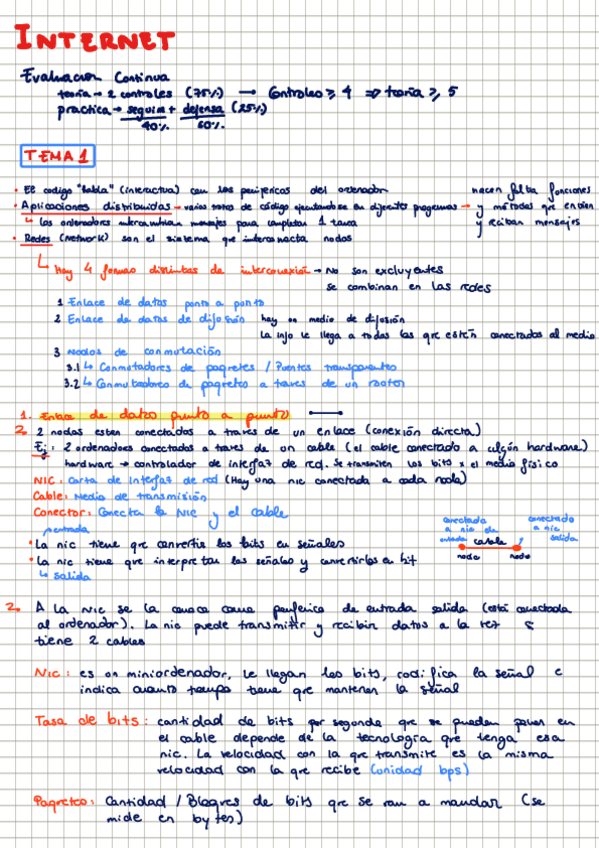 INTERNET
Evaluacion Continua
teoria → 2 controles (75%) → Controles ≥ 4 ⇒ teoria ≥ 5
practica → seguim + defensa (25%)
40% 60%
TEMA 1
• El codigo "habla" (interactua) con los perifericos del ordenador
• Aplicaciones distribuidas → varios trozos de código ejecutandose en diferentes programas → hacen falta funciones y métodos que envien y reciban mensajes
↳ los ordenadores intercambian mensajes para completar 1 tarea
• Redes (Network) son el sistema que interconecta nodos
↳ Hay 4 formas distintas de interconexión → No son excluyentes
se combinan en las redes
1 Enlace de datos punto a punto
2 Enlace de datos de difusión hay un medio de difusión
La info le llega a todos los que estén conectados al medio
3 Nodos de conmutación
3.1 ↳ Conmutadores de paquetes / Puentes transparentes
3.2 ↳ Conmutadores de paquetes a traves de un router
1. Enlace de datos punto a punto
2 2 nodos estan conectados a traves de un enlace (conexión directa)
Ej: 2 ordenadores conectados a traves de un cable (el cable conectado a algún hardware)
hardware → controlador de interfaz de red. Se transmiten los bits x el medio físico
NIC: Carta de interfaz de red (Hay una nic conectada a cada nodo)
Cable: Medio de transmisión
Conector: Conecta la NIC y el cable
entrada
• La nic tiene que convertir los bits en señales
• La nic tiene que interpretar las señales y convertirlas en bit
↳ salida
conectado a nic de entrada cable conectado a nic salida
nodo nodo
2. A la NIC se la conoce como periferico de entrada salida (está conectada
al ordenador). La nic puede transmitir y recibir datos a la vez
tiene 2 cables
NIC: es un miniordenador, le llegan los bits, codifica la señal e
indica cuanto tiempo tiene que mantener la señal
Tasa de bits: cantidad de bits por segundo que se pueden poner en
el cable depende de la tecnología que tenga esa
nic. La velocidad con la que transmite es la misma
velocidad con la que recibe (unidad bps)
Paquetes: Cantidad / Bloques de bits que se van a mandar (se
mide en bytes)